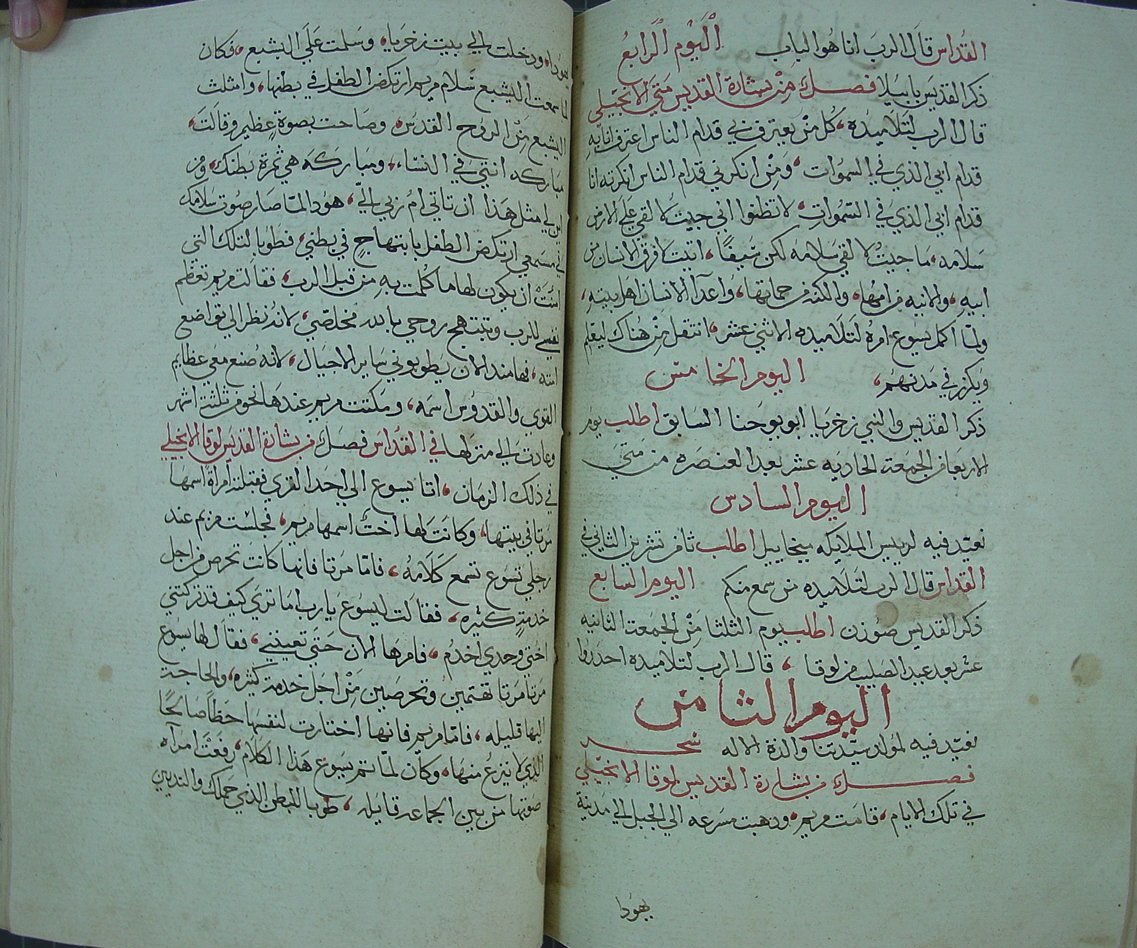 القداس قال الرب انا هو الباب اليوم الرابع
ذكر القديس بابيلا فصل من بشارة القديس متي الانجيلي
قال الرب لتلاميذه، كل من يعترف بي قدام الناس اعترف انا به
قدام ابي الذي في السموات، ومن انكرني قدام الناس انكرته انا
قدام ابي الذي في السموات، لا تظنوا اني جيت لالقي علي الارض
سلامه، ما جيت لالقي سلامه لكن سيفا، اتيت لافرق الانسان من
ابيه، والابنه من امها، والكنه من حماتها، واعدآ الانسان اهل بيته،
ولما اكمل يسوع امره لتلاميذه الاثني عشر، انتقل من هناك ليعلم
ويكرز في مدنهم، اليوم الخامس
ذكر القديس والنبي زخريا ابو يوحنا السابق اطلب يوم
الاربعا من الجمعة الحاديه عشر بعد العنصره من متي
اليوم السادس
نعيد فيه لرييس الملايكه ميخاييل اطلب ثامن تشرين الثاني في
القداس قال الرب لتلاميذه من سمع منكم اليوم السابع
ذكر القديس صوزن اطلب يوم الثلثا من الجمعة الثانيه
عشر بعد عيد الصليب من لوقا، قال الرب لتلاميذه احذروا
اليوم الثامن
نعيد فيه لمولد سيدتنا والدة الاله سحر
فصل من بشارة القديس لوقا الانجيلي
في تلك الايام، قامت مريم، وذهبت مسرعه الي الجبل الي مدينة
يهودا
يهودا، ودخلت الي بيت زخريا، وسلمت علي اليشبع، فكان
لما سمعت اليشبع سلام مريم ارتكض الطفل في بطنها، وامتلت
اليشبع من الروح القدس، وصاحت بصوة عظيم وقالت،
مباركه انتي في النسآ، ومباركه هي ثمرة بطنك، ومن
اين لي مثل هذا ان تاتي ام ربي الي، هودا لما صار صوت سلامك
في مسمعي ارتكض الطفل بابتهاج في بطني، فطوبا لتلك التي
امنت ان يكون لها ما كلمت به من قبل الرب، فقالت مريم تعظم
نفسي للرب وتبتهج روحي بالله مخلصي، لانه نظر الي تواضع
امته، فها منذ الان يطوبوني ساير الاجيال، لانه صنع معي عظايم
القوي والقدوس اسمه، ومكثت مريم عندها نحو من ثلثة اشهر
وعادت الي منزلها في القداس فصل من بشارة القديس لوقا الانجيلي
في ذلك الزمان، اتا يسوع الي احد القري فقبلته امرآة اسمها
مرتا في بيتها، وكانت لها اخت اسمها مريم، فجلست مريم عند
رجلي يسوع تسمع كلامه، فاما مرتا فانها كانت تحرص من اجل
خدمة كثيره، فقالت ليسوع يارب اما تري كيف قد تركتني
اختي وحدي اخدم، فامرها الان حتي تعينني، فقال لها يسوع
مرتا مرتا تهتمين وتحرصين من اجل خدمة كثيره، والحاجة
اليها قليله، فاما مريم فانها اختارت لنفسها حظا صالحا
الذي لا ينزع منها، وكان لما تمم يسوع هذا الكلام، رفعت امرآه
صوتها من بين الجماعه قايله، طوبا للبطن الذي حملك والثديين